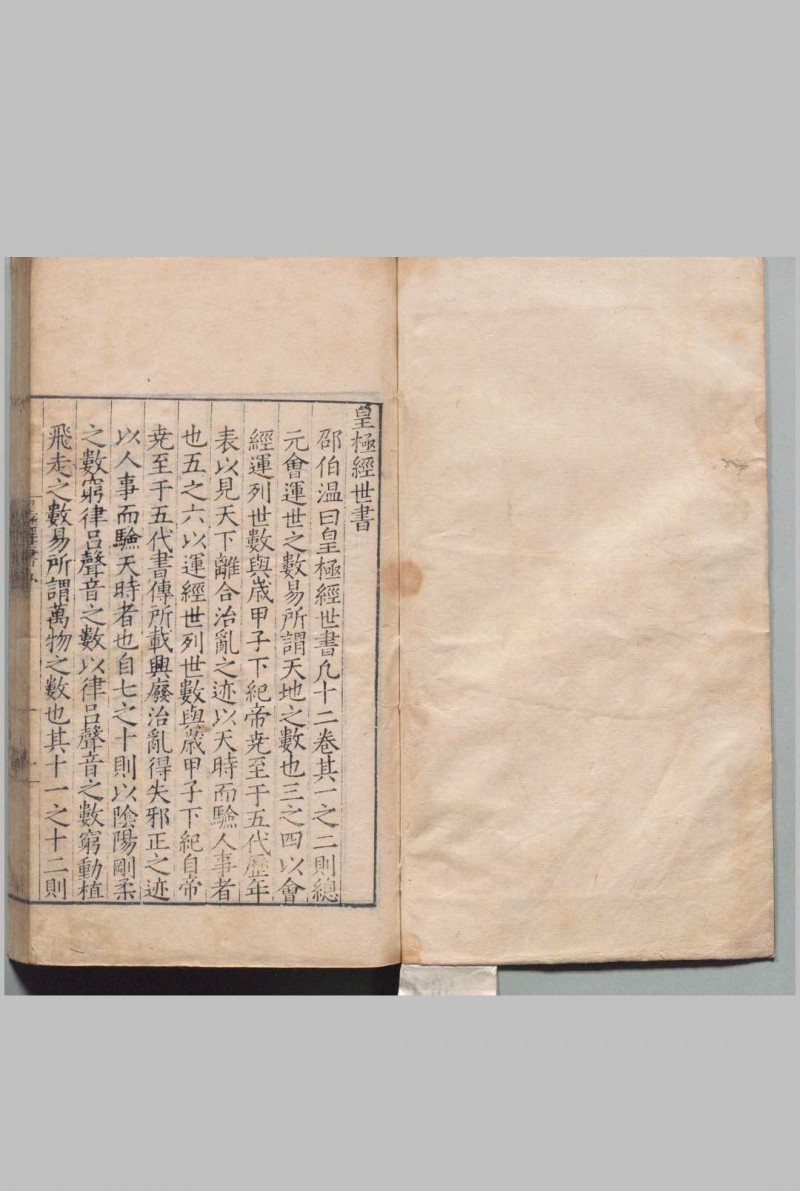 皇極經世書
邵伯溫曰皇極經世書凡十二卷其一之二則總
元會運世之數易所謂天地之數也三之四以會
經運列世數與歲甲子下紀帝堯至于五代歷年
表以見天下離合治亂之迹以天時而驗人事者
也五之六以運經世列世數與歲甲子下紀自帝
堯至于五代書傳所載興廢治亂得失邪正之迹
以人事而驗天時者也自七之十則以陰陽剛柔
之數窮律呂聲音之數以律呂聲音之數窮動植
飛走之數易所謂萬物之數也其十一之十二則